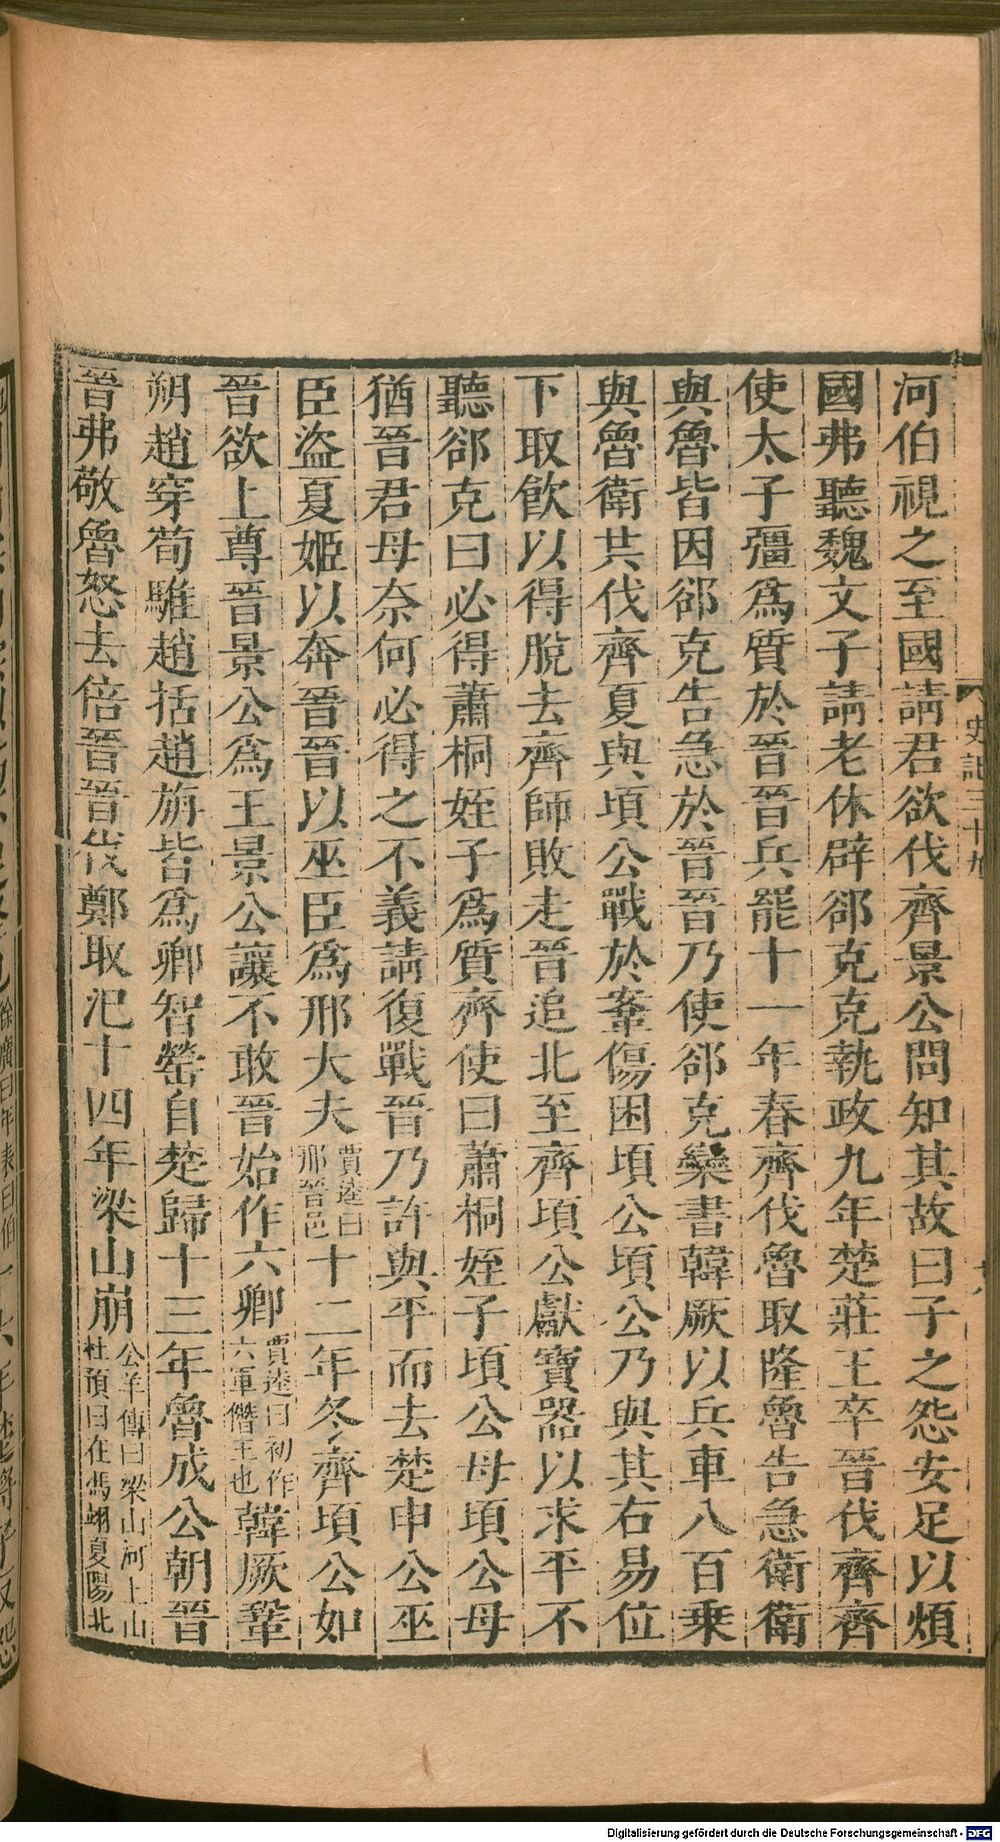 史記三十九
河伯視之至國請君欲伐齊景公問知其故曰子之怨安足以煩
國弗聽魏文子請老休辟郤克克執政九年楚莊王卒晉伐齊齊
使太子彊爲質於晉晉兵罷十一年春齊伐魯取隆魯告急衛衛
與魯皆因郤克告急於晉晉乃使郤克欒書韓厥以兵車八百乘
與魯衛共伐齊夏與頃公戰於鞌傷困頃公頃公乃與其右易位
下取飮以得脫去齊師敗走晉追北至齊頃公獻寶器以求平不
聽郤克曰必得蕭桐姪子爲質齊使曰蕭桐姪子頃公母頃公母
猶晉君母奈何必得之不義請復戰晉乃許與平而去楚申公巫
臣盜夏姬以奔晉晉以巫臣爲邢大夫賈逵曰邢晉邑十二年冬齊頃公如
晉欲上尊晉景公爲王景公讓不敢晉始作六卿賈逵曰初作六軍僭王也韓厥鞏
朔趙穿荀騅趙括趙旃皆爲卿智罃自楚歸十三年魯成公朝晉
晉弗敬魯怒去倍晉晉伐鄭取汜十四年梁山崩公羊傳曰梁山河上山杜預曰在馮翊夏陽北
徐廣曰年表曰伯
Digitalisierung gefördert durch die Deutsche Forschungsgemeinschaft - DFG